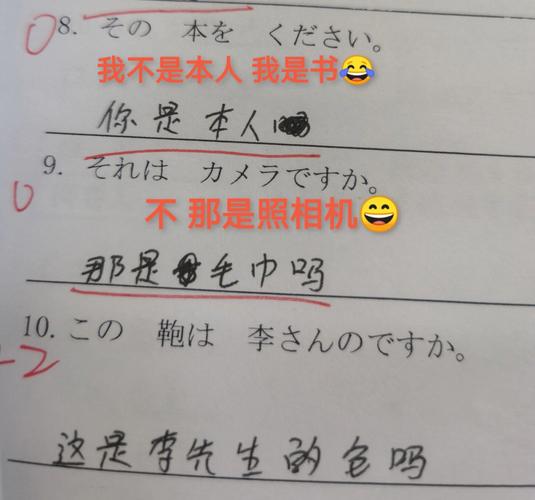 8. その 本を ください。
我不是本人 我是书😂
你是本人
9. それは カメラですか。
不 那是照相机😄
那是毛巾吗
10. この 鞄は 李さんのですか。
-2
这是李先生的包吗